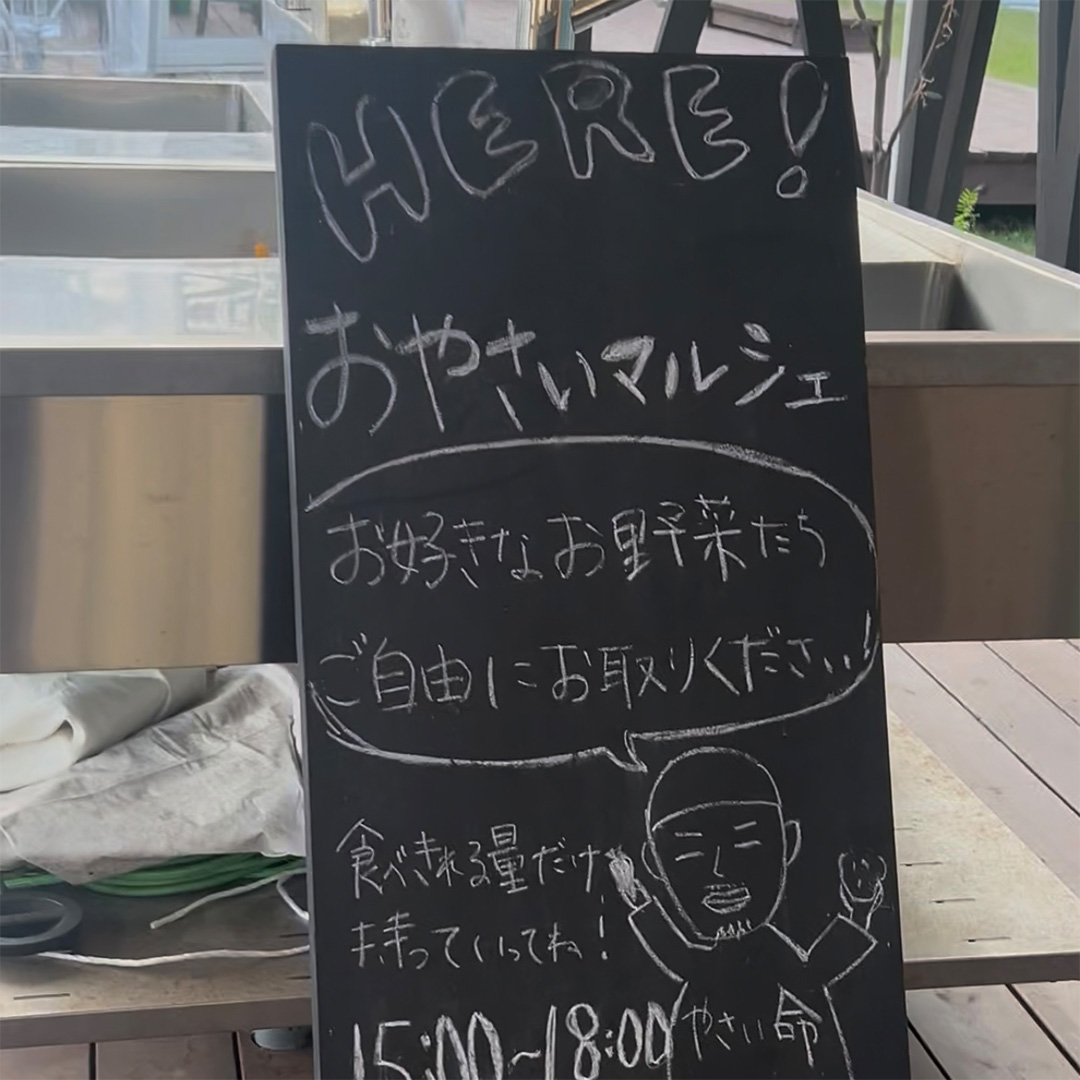 HERE!
おやさいマルシェ
お好きなお野菜たち
ご自由にお取りください!
食べきれる量だけ
持っていってね!
15:00~18:00
やさい命